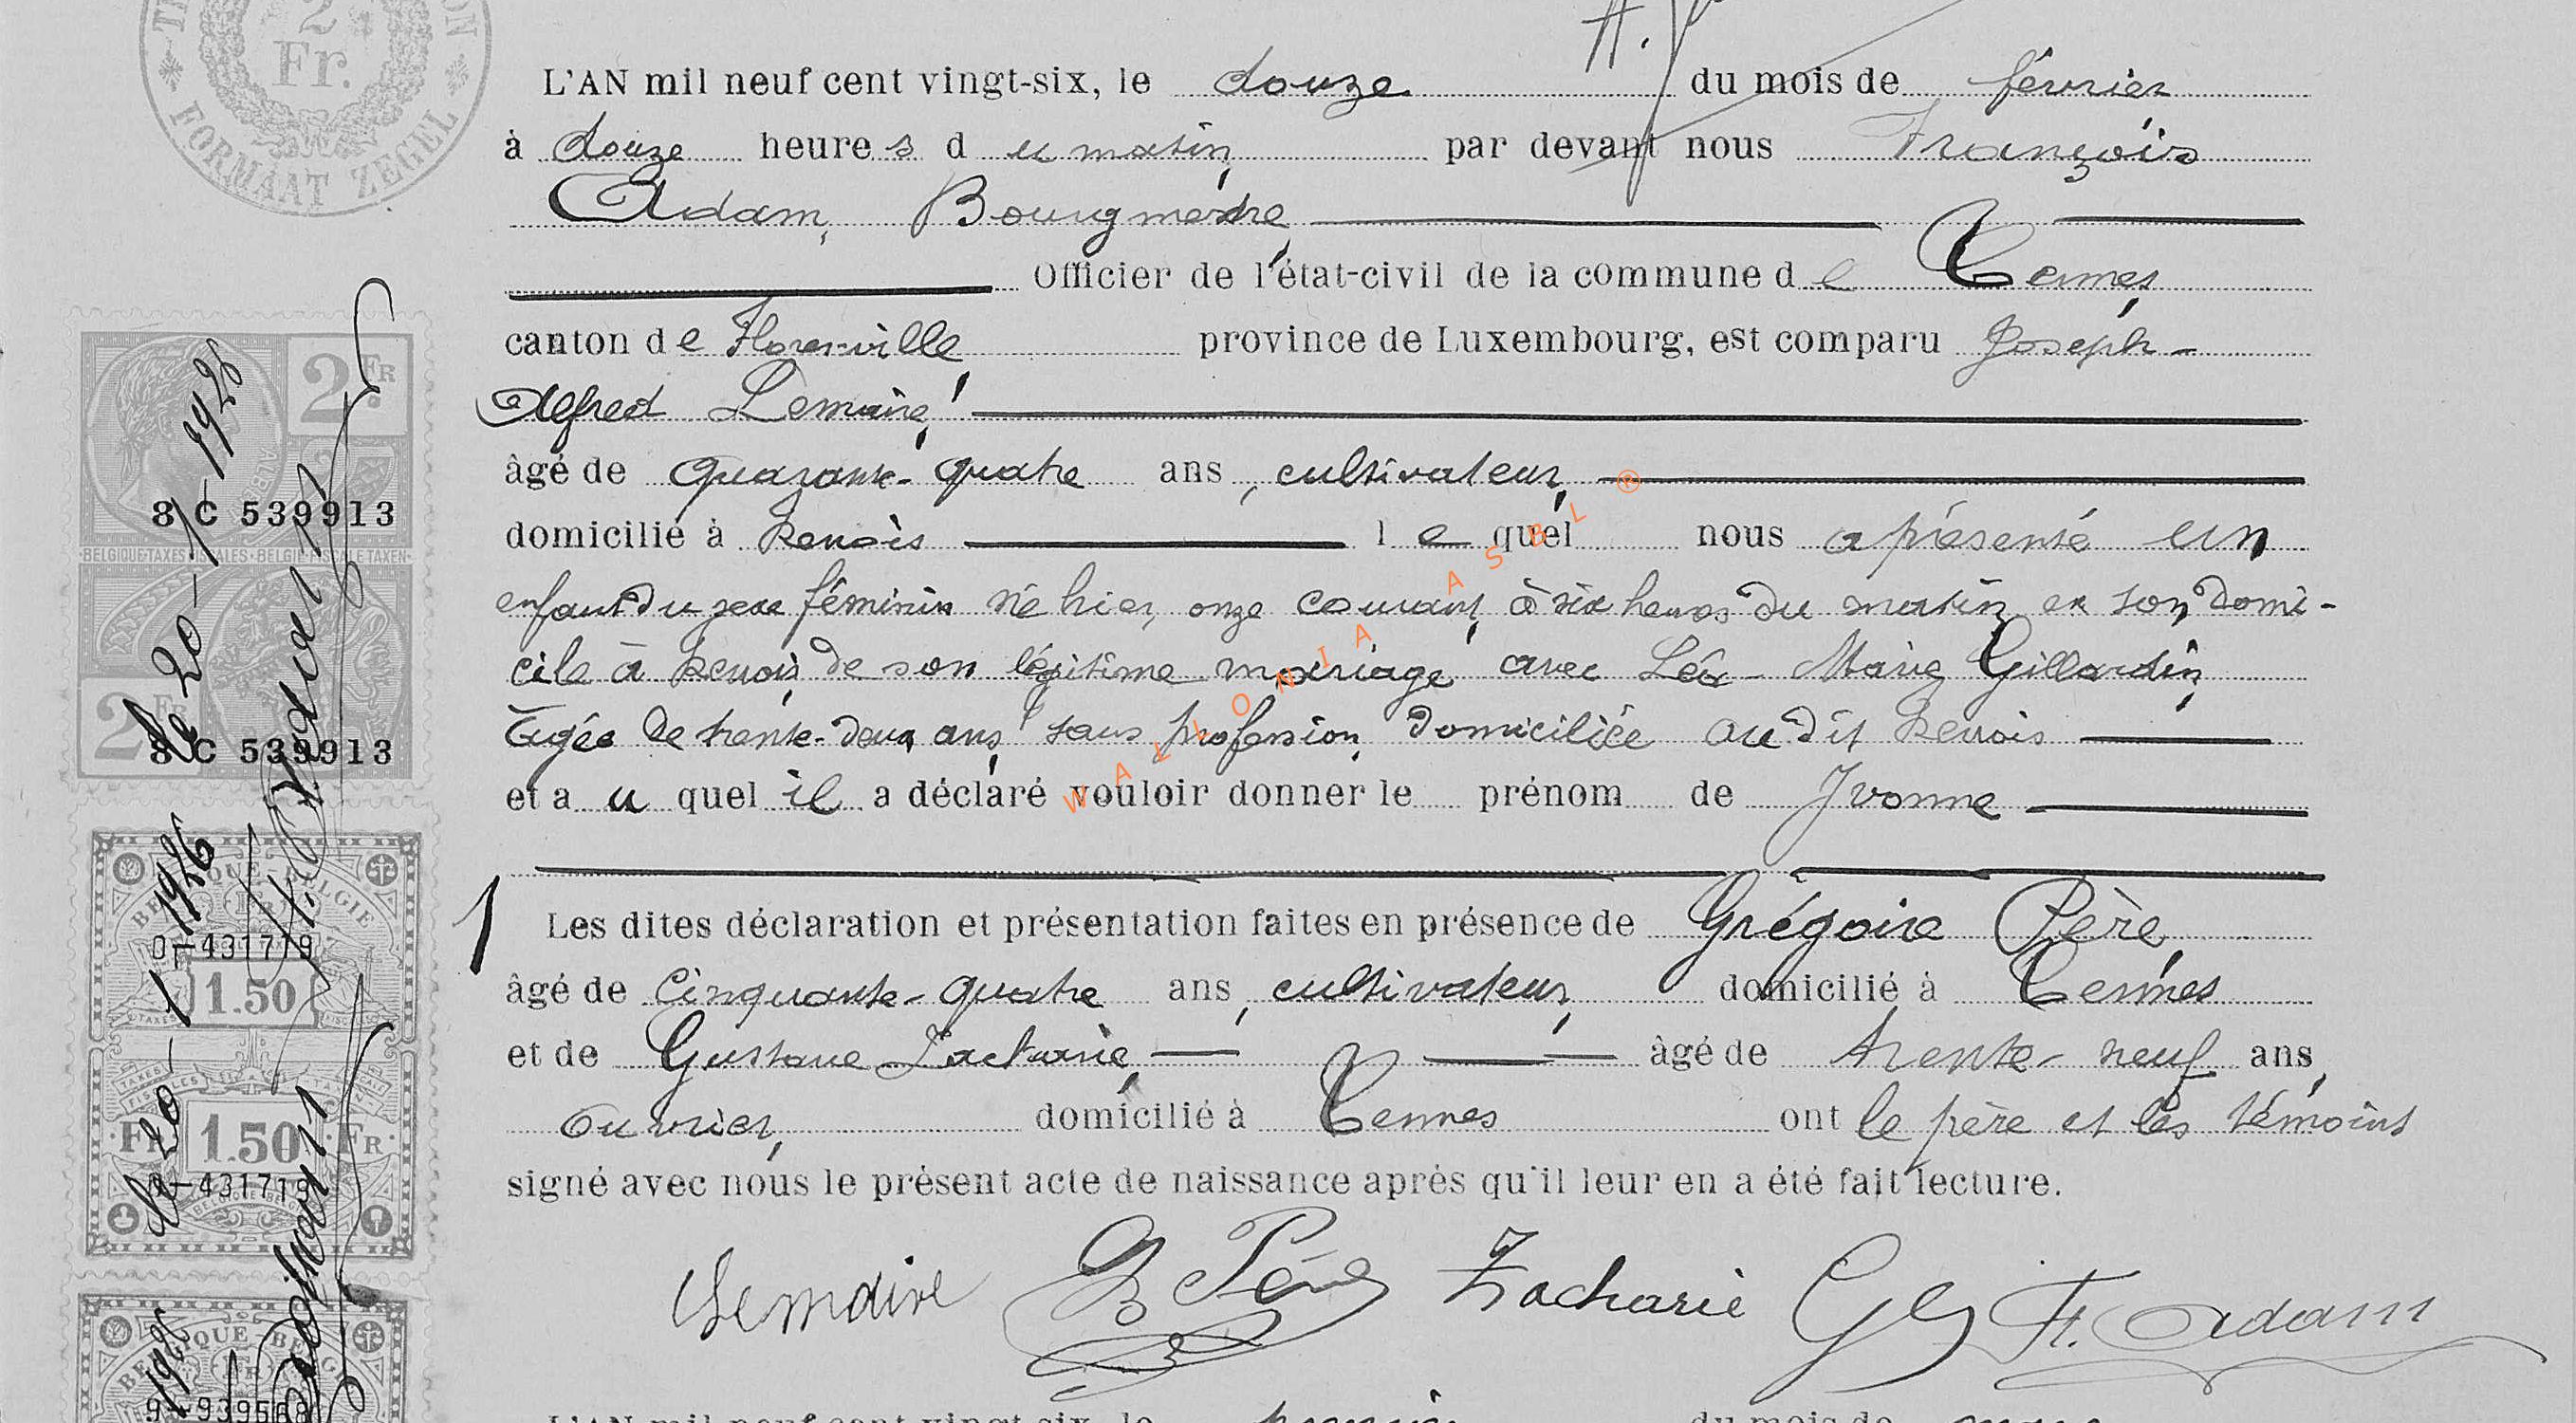 2
Fr.
FORMAAT ZEGEL
L'AN mil neuf cent vingt-six, le douze du mois de février
à douze heures du matin, par devant nous François
Adam, Bourgmestre,
Officier de l'état-civil de la commune de Termes,
canton de Florenville, province de Luxembourg, est comparu Joseph-
Alfred Lemaire,
âgé de quarante-quatre ans, cultivateur,
domicilié à Lenois lequel nous a présenté un
enfant du sexe féminin né hier, onze courant, à six heures du matin, en son domi-
cile à Lenois, de son légitime mariage avec Léa-Marie Gillardin,
âgée de trente-deux ans, sans profession, domiciliée au dit Lenois
et auquel il a déclaré vouloir donner le prénom de Yvonne
Les dites déclaration et présentation faites en présence de Grégoire Père,
âgé de cinquante-quatre ans, cultivateur, domicilié à Termes
et de Gustave Zacharie, âgé de trente-neuf ans,
ouvrier, domicilié à Termes ont le père et les témoins
signé avec nous le présent acte de naissance après qu'il leur en a été fait lecture.
Lemaire G Père Zacharie G F. Adam
2 Fr
8 C 539913
BELGIQUE TAXES FISCALES · BELGIË FISCALE TAXEN
2 Fr
8 C 539913
le 20-1-1926
BELGIQUE-BELGIË
0-431719
1.50
Fr 1.50 Fr
0-431719
le 20-1-1926
BELGIQUE-BELGIË
1926
9-939568
WALLONIA ASBL ®
L'AN mil neuf cent vingt-six, le premier du mois de mars